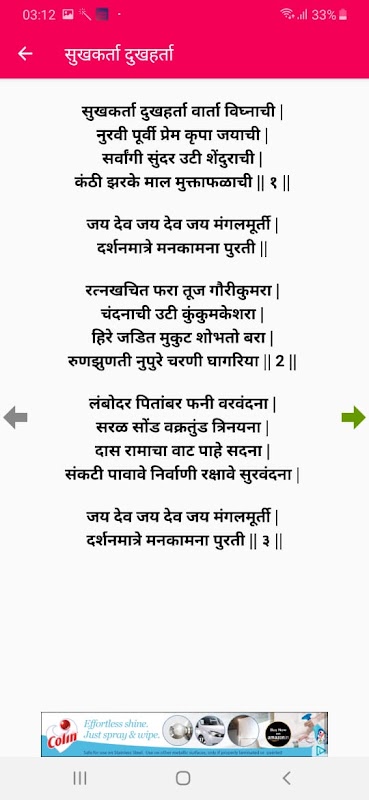 03:12
33%
सुखकर्ता दुखहर्ता
सुखकर्ता दुखहर्ता वार्ता विघ्नाची |
नुरवी पूर्वी प्रेम कृपा जयाची |
सर्वांगी सुंदर उटी शेंदुराची |
कंठी झरके माल मुक्ताफळाची || १ ||
जय देव जय देव जय मंगलमूर्ती |
दर्शनमात्रे मनकामना पुरती ||
रत्नखचित फरा तूज गौरीकुमरा |
चंदनाची उटी कुंकुमकेशरा |
हिरे जडित मुकुट शोभतो बरा |
रुणझुणती नुपुरे चरणी घागरिया || 2 ||
लंबोदर पितांबर फनी वरवंदना |
सरळ सोंड वक्रतुंड त्रिनयना |
दास रामाचा वाट पाहे सदना |
संकटी पावावे निर्वाणी रक्षावे सुरवंदना |
जय देव जय देव जय मंगलमूर्ती |
दर्शनमात्रे मनकामना पुरती || ३ ||
Colin
Effortless shine.
Just spray & wipe.
Buy Now